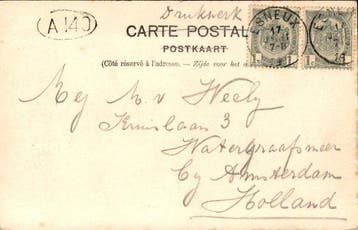 A 140
Drukwerk
CARTE POSTALE
POSTKAART
(Côté réservé à l'adresse. — Zijde voor het
ESNEUX
17
7-8
1
1
Mej M. v Weely
Kruislaan 3
Watergraafsmeer
by Amsterdam
Holland